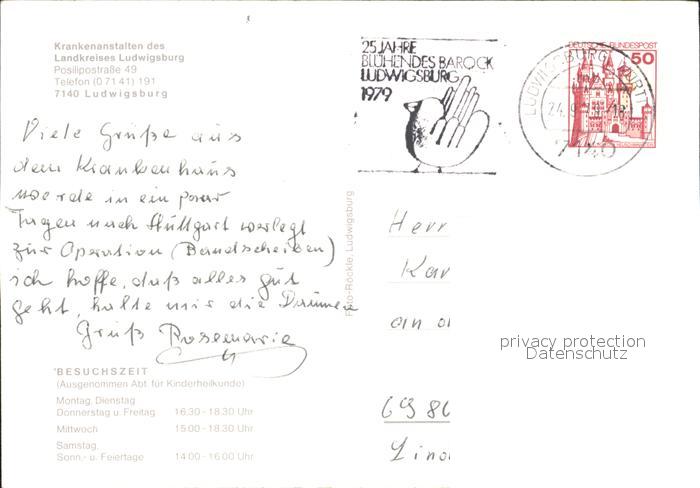 Krankenanstalten des
Landkreises Ludwigsburg
Posilipostraße 49
Telefon (0 71 41) 191
7140 Ludwigsburg
25 JAHRE
BLÜHENDES BAROCK
LUDWIGSBURG
1979
DEUTSCHE BUNDESPOST
50
LUDWIGSBURG, WÜRTT
24.9.79-18
7140
Viele Grüße aus
dem Krankenhaus
werde in ein paar
Tagen nach Stuttgart verlegt
zur Operation (Bandscheiben)
ich hoffe, daß alles gut
geht, halte mir die Daumen
Gruß Rosemarie
Foto-Röckle, Ludwigsburg
Herr
Kar
an
privacy protection
Datenschutz
69 86
Lind
BESUCHSZEIT
(Ausgenommen Abt. für Kinderheilkunde)
Montag, Dienstag
Donnerstag u. Freitag 16.30 - 18.30 Uhr
Mittwoch 15.00 - 18.30 Uhr
Samstag,
Sonn.- u. Feiertage 14.00 - 16.00 Uhr